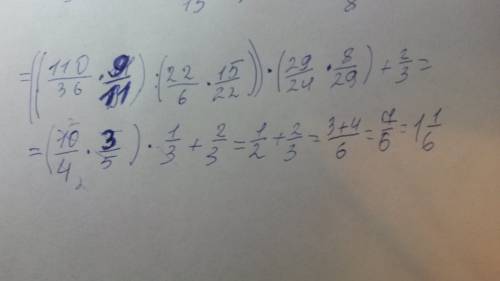 15 8
=((110/36 · 9/11) : (22/6 · 15/22)) · (29/24 · 8/29) + 2/3 =
= (10/4 2 · 3/5) · 1/3 + 2/3 = 1/2 + 2/3 = 3+4/6 = 7/6 = 1 1/6